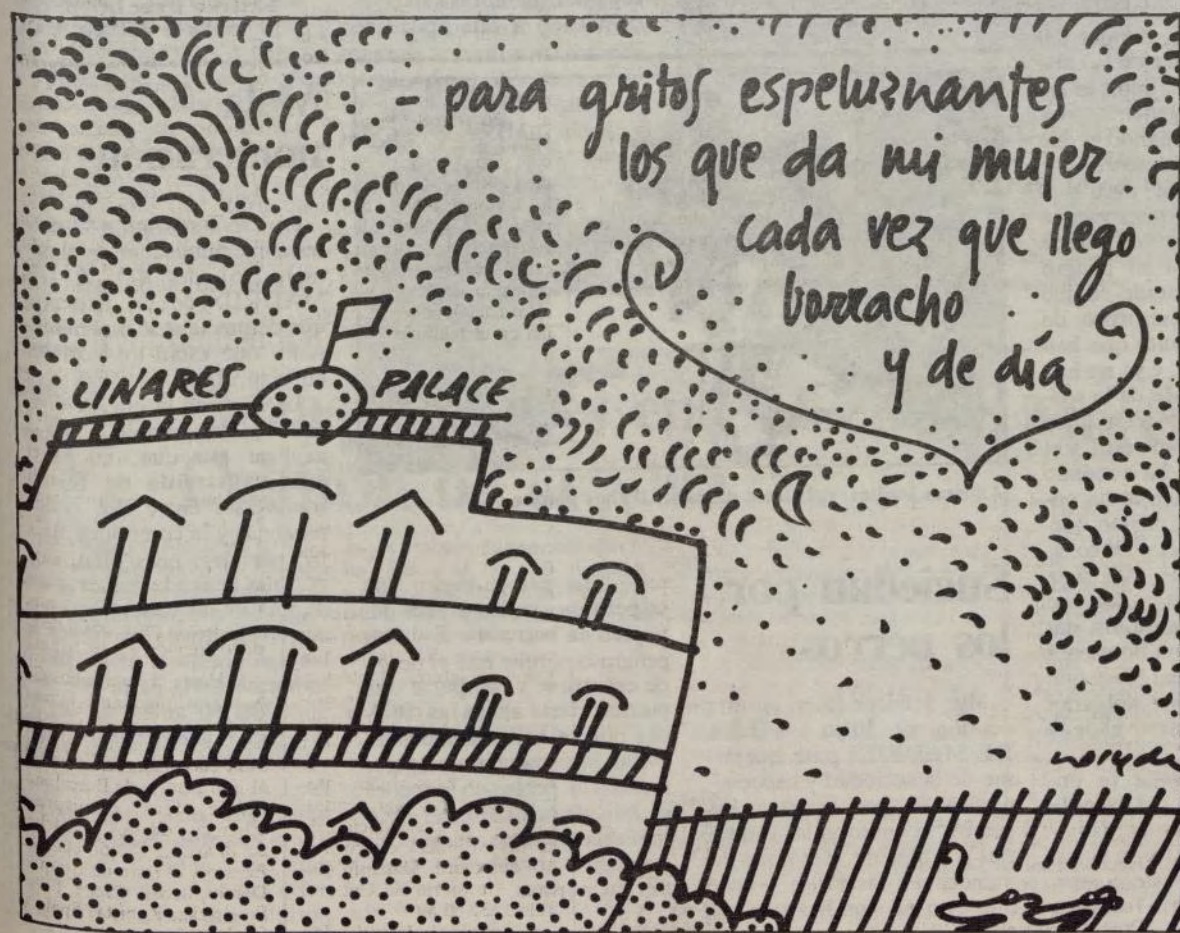 - para gritos espeluznantes
los que da mi mujer
cada vez que llego
borracho
y de día
LINARES PALACE